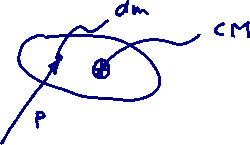 dm
CM
P